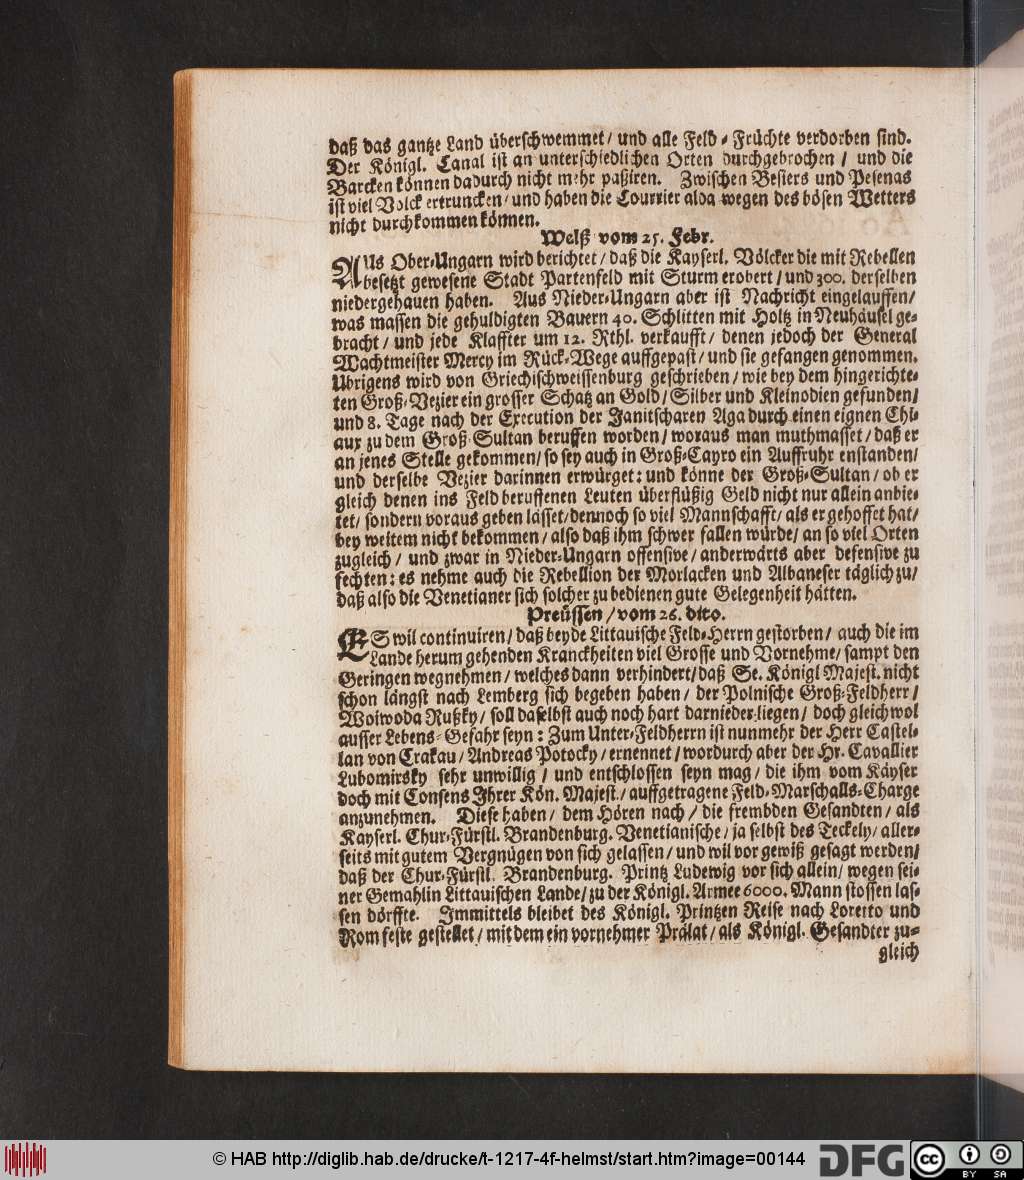 daß das gantze Land überschwemmet/ und alle Feld-Früchte verdorben sind.
Der Königl. Canal ist an unterschiedlichen Orten durchgebrochen/ und die
Barcken können dadurch nicht mehr paßiren. Zwischen Besiers und Pesenas
ist viel Volck ertruncken/ und haben die Courrier alda wegen des bösen Wetters
nicht durchkommen können.
Welß vom 25. Febr.
AUs Ober-Ungarn wird berichtet/ daß die Kayserl. Völcker die mit Rebellen
besetzt gewesene Stadt Partenfeld mit Sturm erobert/ und 300. derselben
niedergehauen haben. Aus Nieder-Ungarn aber ist Nachricht eingelauffen/
was massen die gehuldigten Bauern 40. Schlitten mit Holtz in Neuhäusel ge-
bracht/ und jede Klaffter um 12. Rthl. verkaufft/ denen jedoch der General
Wachtmeister Mercy im Rück-Wege auffgepast/ und sie gefangen genommen.
Ubrigens wird von Griechischweissenburg geschrieben/ wie bey dem hingerichte-
ten Groß-Vezier ein grosser Schatz an Gold/ Silber und Kleinodien gefunden/
und 8. Tage nach der Execution der Janitscharen Aga durch einen eignen Chi-
aux zu dem Groß-Sultan beruffen worden/ woraus man muthmasset/ daß er
an jenes Stelle gekommen/ so sey auch in Groß-Cayro ein Auffruhr enstanden/
und derselbe Vezier darinnen erwürget: und könne der Groß-Sultan/ ob er
gleich denen ins Feld beruffenen Leuten überflüßig Geld nicht nur allein anbie-
tet/ sondern voraus geben lässet/ dennoch so viel Mannschafft/ als er gehoffet hat/
bey weitem nicht bekommen/ also daß ihm schwer fallen würde/ an so viel Orten
zugleich/ und zwar in Nieder-Ungarn offensive/ anderwärts aber defensive zu
fechten: es nehme auch die Rebellion der Morlacken und Albaneser täglich zu/
daß also die Venetianer sich solcher zu bedienen gute Gelegenheit hätten.
Preüssen/ vom 26. dito.
ES wil continuiren/ daß beyde Littauische Feld-Herrn gestorben/ auch die im
Lande herum gehenden Kranckheiten viel Grosse und Vornehme/ sampt den
Geringen wegnehmen/ welches dann verhindert/ daß Se. Königl Majest. nicht
schon längst nach Lemberg sich begeben haben/ der Polnische Groß-Feldherr/
Woiwoda Rußky/ soll daselbst auch noch hart darnieder-liegen/ doch gleichwol
ausser Lebens-Gefahr seyn: Zum Unter-Feldherrn ist nunmehr der Herr Castel-
lan von Crakau/ Andreas Potocky/ ernennet/ wordurch aber der Hr. Cavallier
Lubomirsky sehr unwillig/ und entschlossen seyn mag/ die ihm vom Käyser
doch mit Consens Ihrer Kön. Majest./ auffgetragene Feld-Marschalls-Charge
anzunehmen. Diese haben/ dem Hören nach/ die frembden Gesandten/ als
Kayserl. Chur-Fürstl. Brandenburg. Venetianische/ ja selbst des Teckely/ aller-
seits mit gutem Vergnügen von sich gelassen/ und wil vor gewiß gesagt werden/
daß der Chur-Fürstl. Brandenburg. Printz Ludewig vor sich allein/ wegen sei-
ner Gemahlin Littauischen Lande/ zu der Königl. Armee 6000. Mann stossen las-
sen dörffte. Immittels bleibet des Königl. Printzen Reise nach Loretto und
Rom feste gestellet/ mit dem ein vornehmer Prälat/ als Königl. Gesandter zu-
gleich
© HAB http://diglib.hab.de/drucke/t-1217-4f-helmst/start.htm?image=00144
DFG
cc BY SA